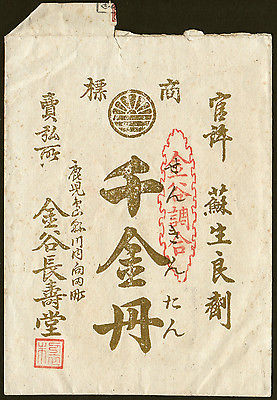 商標
官許 蘇生良劑
金谷調合
千金丹
せんきんたん
賣弘所
鹿児島縣川内向田町
金谷長壽堂